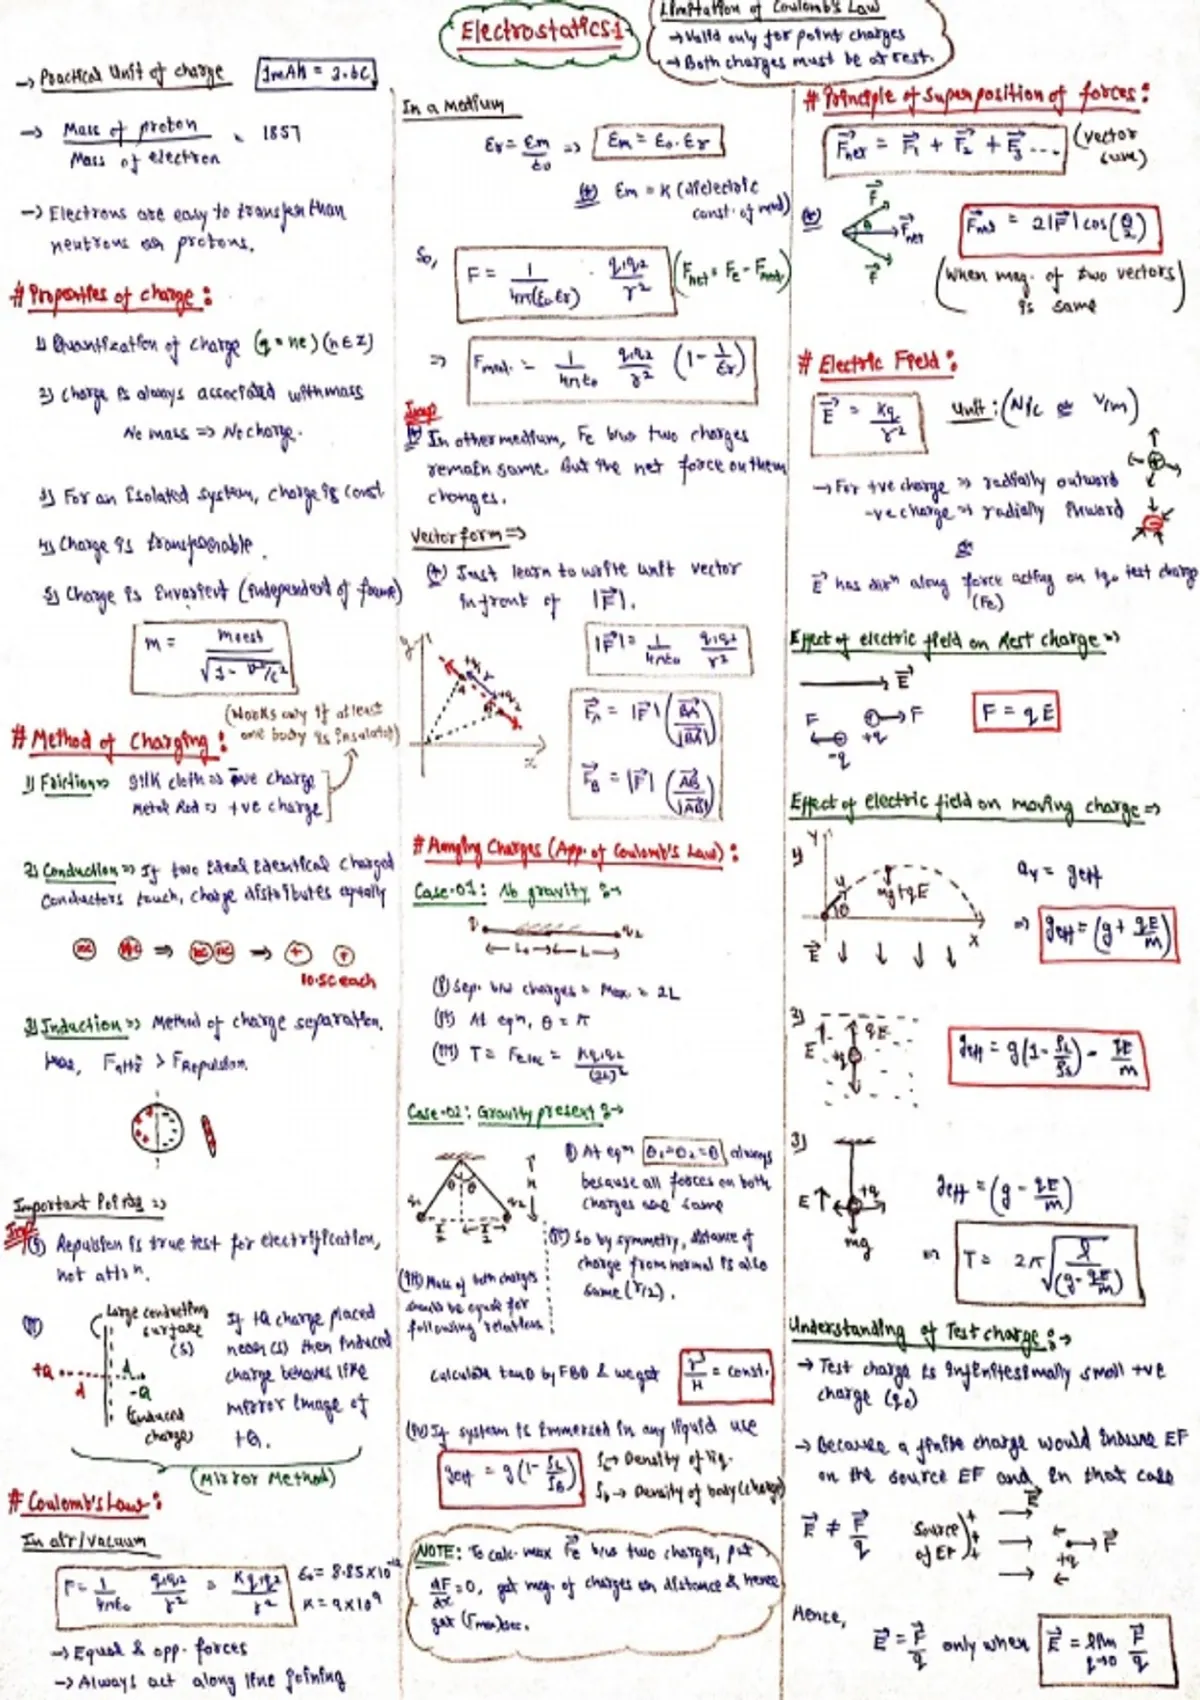 Electrostatics-1
Limitation of Coulomb's Law
→ Valid only for point charges
→ Both charges must be at rest.
→ Practical Unit of charge 1mAh = 3.6C
→ Mass of proton / Mass of electron ≈ 1837
→ Electrons are easy to transfer than
neutrons or protons.
# Properties of charge :
1) Quantization of charge (q = ne) (n ∈ Z)
2) Charge is always associated with mass
No mass => No charge.
3) For an isolated system, charge is const.
4) Charge is transferable.
5) Charge is Invarient (independent of frame)
m = m rest / √(1 - v²/c²)
# Method of Charging :
(Works only if at least
one body is insulator)
1) Friction => silk cloth => -ve charge
Metal Rod => +ve charge
2) Conduction => If two ideal identical charged
conductors touch, charge distributes equally
+ +
10.5C each
3) Induction => Method of charge separation.
F > F Repulsion.
Important Points =>
Imp
(i) Repulsion is true test for electrification,
not attrn.
(ii) Large conducting
surface
(S)
+Q d d -Q
(Induced
charge)
If +Q charge placed
near (S) then induced
charge behaves like
mirror image of
+Q.
(Mirror Method)
# Coulomb's Law :
In air/vacuum
F = 1/4πε₀ q₁q₂/r² = Kq₁q₂/r²
ε₀ = 8.85×10⁻¹²
K = 9×10⁹
→ Equal & opp. forces
→ Always act along line joining
In a Medium
εr = εm/ε₀ => εm = ε₀.εr
(*) εm = K (dielectric
const. of med)
So, F = 1/4π(ε₀ εr) . q₁q₂/r² (Fnet = Fe - Fmed.)
=> Fmed. = 1/4πε₀ q₁q₂/r² (1 - 1/εr)
Imp
(*) In other medium, Fe b/w two charges
remain same. But the net force on them
changes.
Vector form =>
(*) Just learn to write unit vector
in front of |F⃗|.
y x A B r +q₁ +q₂
|F⃗| = 1/4πε₀ q₁q₂/r²
F⃗A = |F⃗| (BA⃗/|BA⃗|)
F⃗B = |F⃗| (AB⃗/|AB⃗|)
# Hanging Charges (App. of Coulomb's Law) :
Case-01 : No gravity :→
q₁ q₂
← L → ← L →
(i) Sep. b/w charges = Max. = 2L
(ii) At eqm, θ = π
(iii) T = Felec = Kq₁q₂/(2L)²
Case-02 : Gravity present :→
θ θ H q₁ q₂ r/2 r/2
(i) At eqm θ₁=θ₂=θ always
because all forces on both
charges are same
(ii) So by symmetry, distance of
charge from normal is also
same (r/2).
(iii) Mass of both charges
should be equal for
following relations
Calculate tanθ by FBD & we get r³/H = const.
(iv) If system is immersed in any liquid use
geff = g(1 - ρL/ρB)
ρL → Density of liq.
ρb → Density of body (charge)
NOTE : To calc. max Fe b/w two charges, put
dF/dx = 0, get mag. of charges or distance & hence
get (Fmax)elec.
# Principle of Superposition of forces :
F⃗net = F⃗₁ + F⃗₂ + F⃗₃ .... (vector
sum)
(*) F⃗ θ F⃗net F⃗
F⃗net = 2|F⃗|cos(θ/2)
(when mag. of two vectors
is same)
# Electric Field :
E⃗ = Kq/r² Unit : (N/C or V/m)
→ For +ve charge => radially outward
-ve charge => radially inward
or
E⃗ has dirn along force acting on +q₀ test charge
(Fe)
Effect of electric field on Rest charge =>
E⃗
F -q +q F
F = qE
Effect of electric field on moving charge =>
1) Y u θ mg+qE X E⃗
ay = geff
=> geff = (g + qE/m)
2) E qE +q
geff = g(1 - ρL/ρs) - qE/m
3) E +q mg
geff = (g - qE/m)
=> T = 2π √(l/(g - qE/m))
Understanding of Test charge :→
→ Test charge is infinitesimally small +ve
charge (q₀)
→ Because a finite charge would induce EF
on the source EF and in that case
E⃗ ≠ F⃗/q
Source
of EF
E⃗ +q F⃗
Hence,
E⃗ = F⃗/q only when E⃗ = lim q→0 F⃗/q